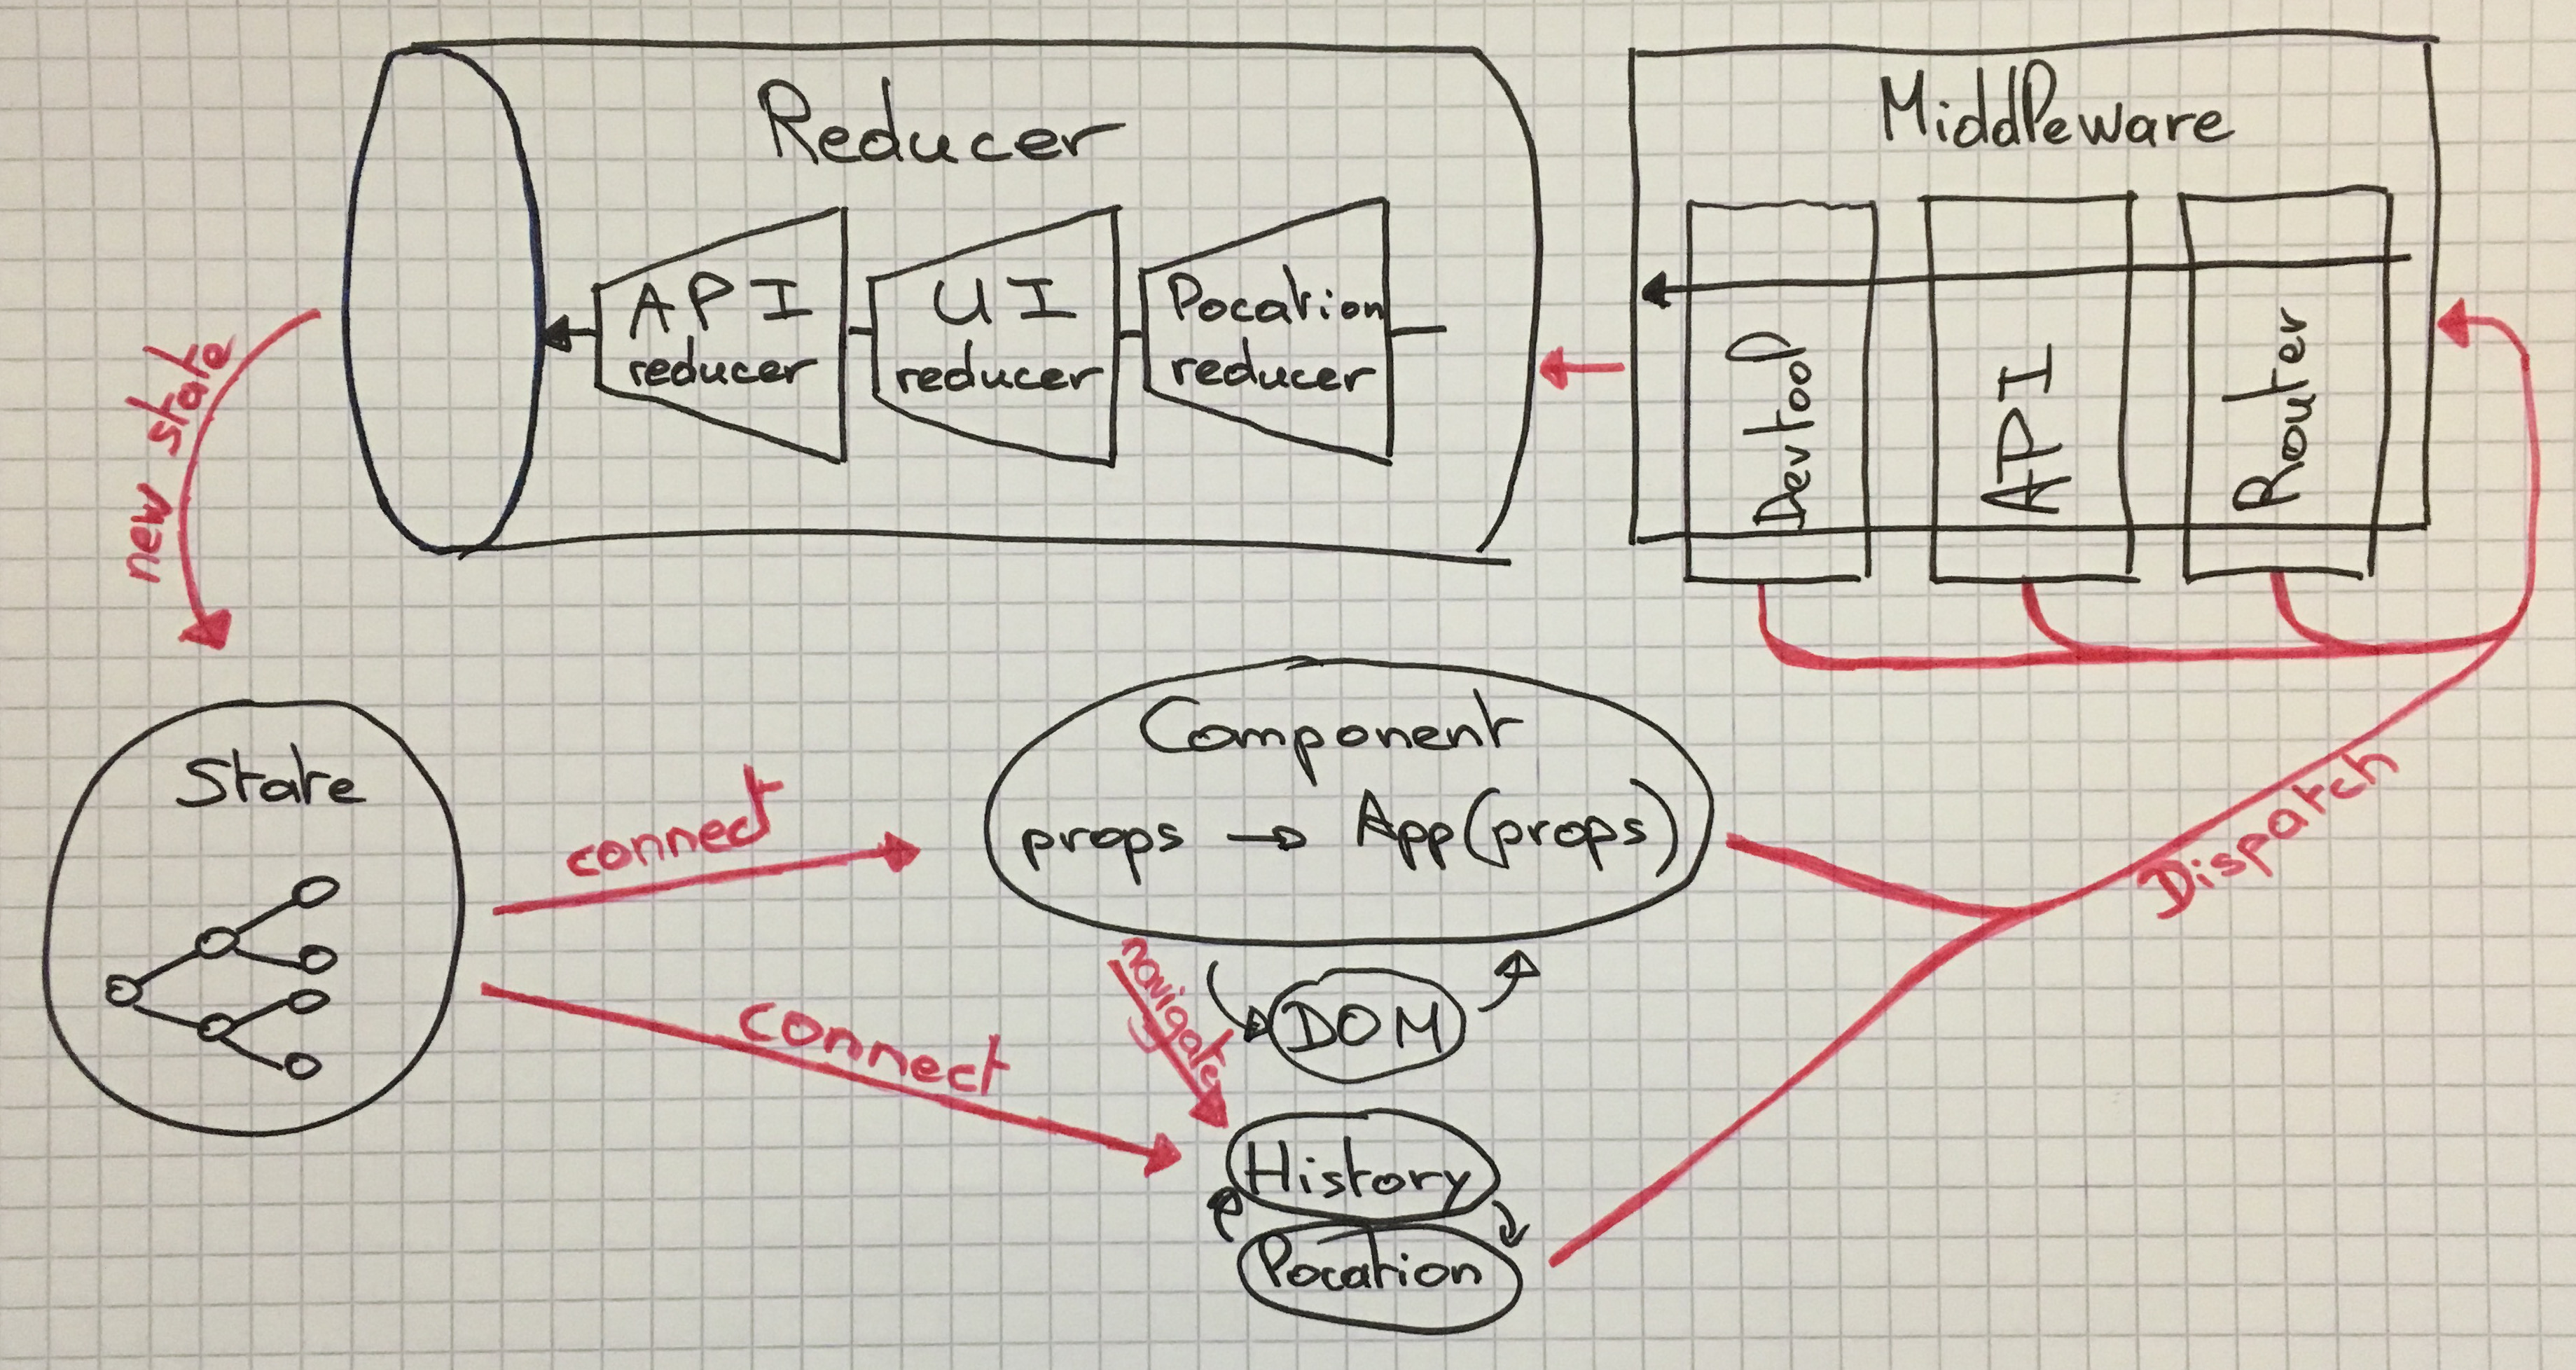 Reducer
API
reducer
UI
reducer
location
reducer
Middleware
Devtool
API
Router
new state
State
connect
connect
Component
props → App(props)
navigate
DOM
History
location
Dispatch